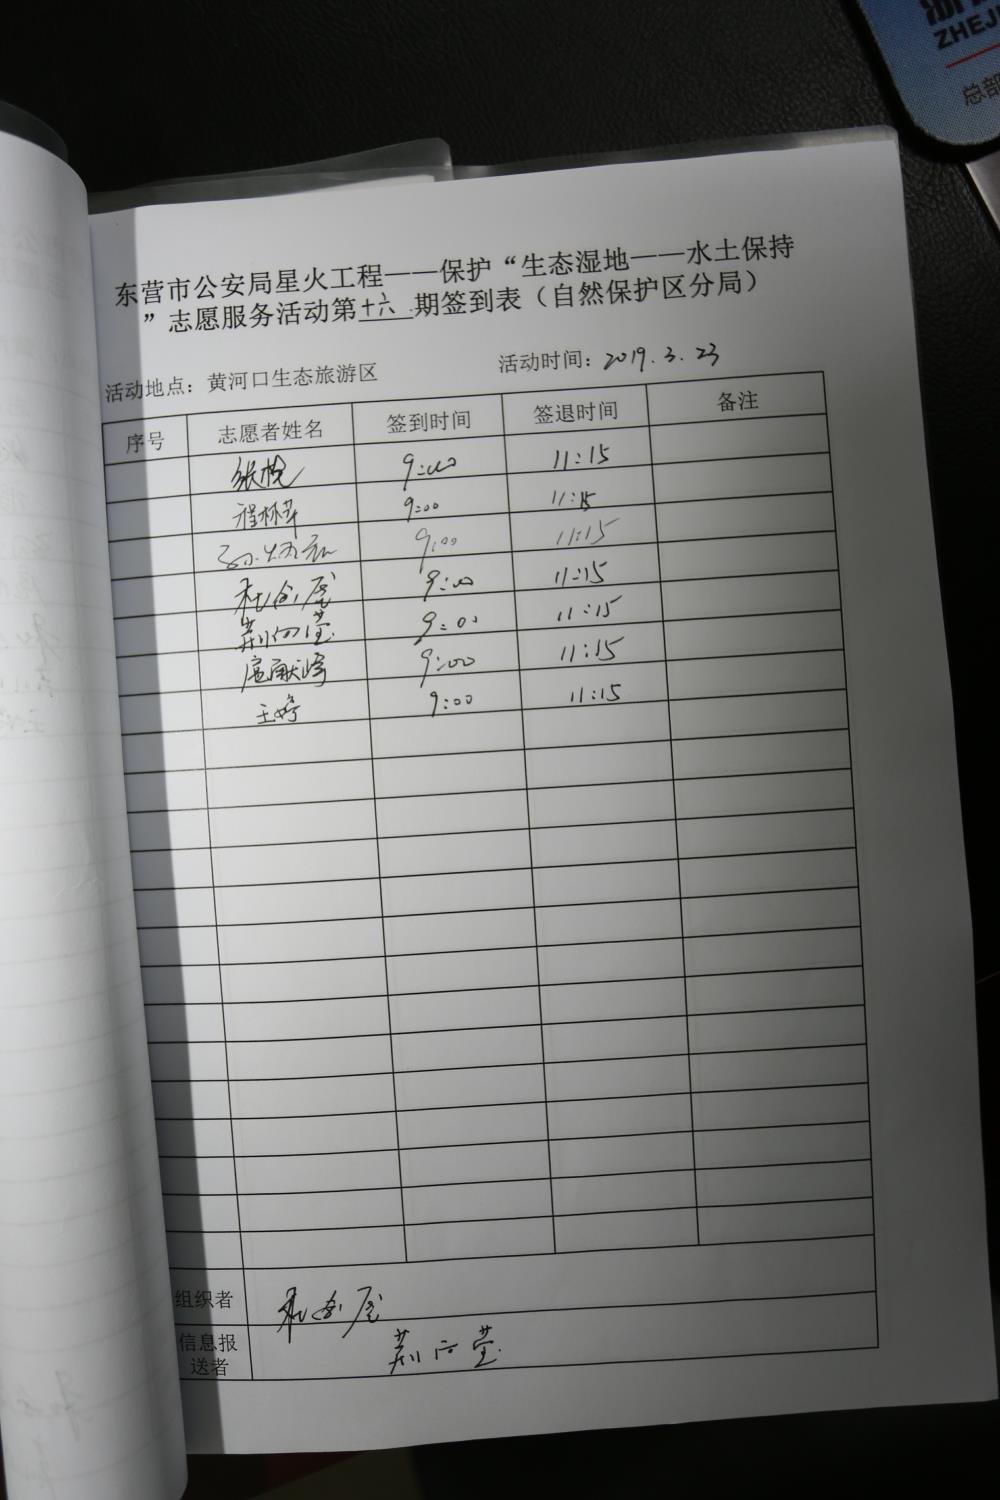 ZHEJ
总部
东营市公安局星火工程——保护“生态湿地——水土保持
”志愿服务活动第十六期签到表（自然保护区分局）
活动地点：黄河口生态旅游区 活动时间：2019.3.23
序号 志愿者姓名 签到时间 签退时间 备注
9:00 11:15
程林苹 9:00 11:15
9:00 11:15
9:00 11:15
9:00 11:15
9:00 11:15
王婷 9:00 11:15
组织者
信息报
送者